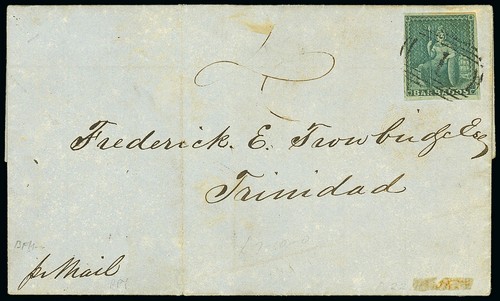 BARBADOS
1
Frederick. E. Trowbridge Esq
Trinidad
pr Mail